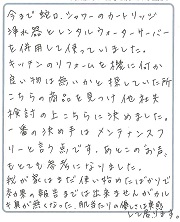 今まで蛇口、シャワーのカートリッジ
浄水器とレンタルウォーターサーバー
を併用して使っていました。
キッチンのリフォームを機に何か
良い物は無いかと探していた所
こちらの商品を見つけ他社共
検討の上こちらに決めました。
一番の決め手はメンテナンスフ
リーと言う点です。あとこのお声、
もとても参考になりました。
我が家はまだ使い始めたばかりで
効果の報告までは出来ませんがカルキ
臭が無くなった、肌当たりの優しさは実感
して居ります。